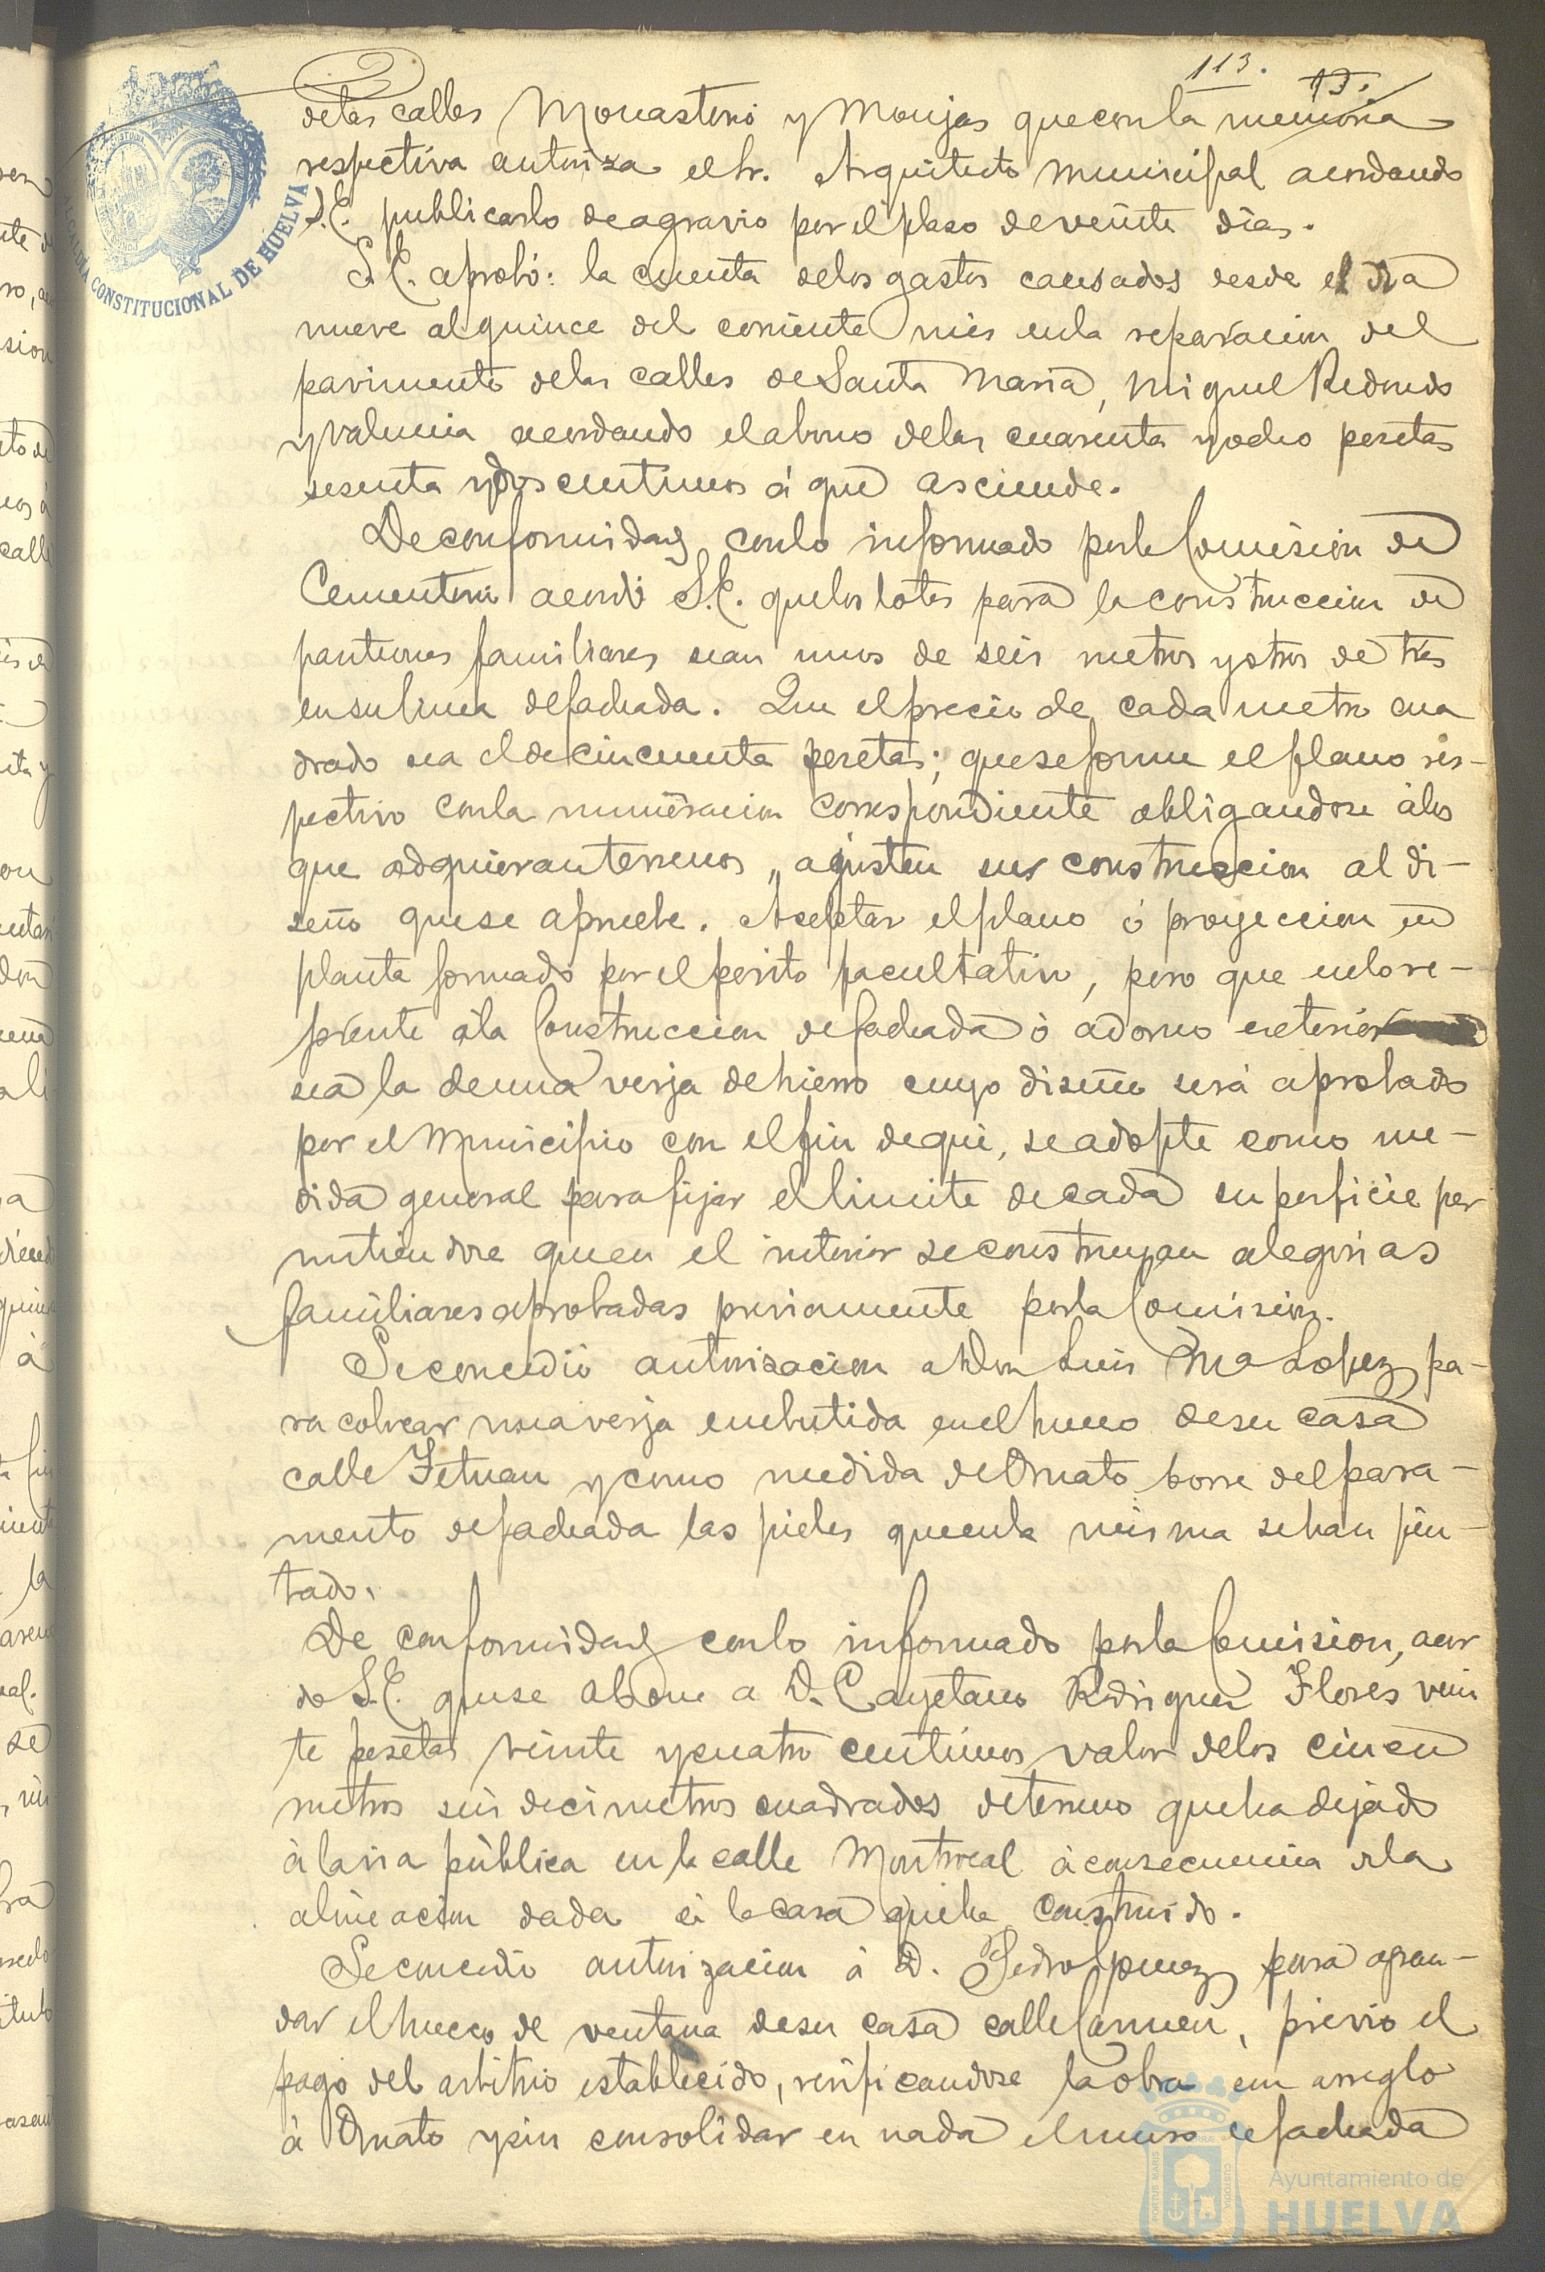 113.
13.
de las calles Monasterio y Monjas que con la memoria
respectiva autoriza el Sr. Arquitecto Municipal acordando
S.E. publicarlo de agravio por el plaso de veinte dias.
S.E. aprobó: la cuenta de los gastos causados desde el dia
nueve al quince del corriente mes en la reparacion del
pavimento de las calles de Santa Maria, Miguel Redondo
y Valencia acordando el abono de las cuarenta y ocho pesetas
sesenta y dos centimos á que asciende.
De conformidad con lo informado por la Comision de
Cementerio acordó S.E. que los lotes para la construccion de
panteones familiares sean unos de seis metros y otros de tres
en su linea de fachada. Que el precio de cada metro cua
drado sea el de cincuenta pesetas; que se forme el plano res-
pectivo con la numeracion correspondiente obligandose á los
que adquieran terrenos, ajusten sus construccion al di-
seño que se apruebe. Aceptar el plano ó proyeccion en
planta formado por el perito facultativo, pero que en lo re-
ferente á la Construccion de fachada ó adorno exterior
sea la de una verja de hierro cuyo diseño será aprobado
por el Municipio con el fin de que, se adopte como me-
dida general para fijar el limite de cada superficie per
mitiendose que en el interior se construyan alegorias
familiares aprobadas previamente por la Comision.
Se concedió autorizacion a Don Luis Mª Lopez pa-
ra colocar una verja embutida en el hueco de su casa
calle Tetuan y como medida de Ornato borre del para-
mento de fachada las pieles que en la misma se han pin-
tado.
De conformidad con lo informado por la Comision, acor
dó S.E. que se abone a D. Cayetano Rodriguez Flores vein
te pesetas veinte y cuatro centimos valor de los cinco
metros seis decimetros cuadrados de terreno que ha dejado
á la via pública en la calle Montrocal á consecuencia de la
alineacion dada á la casa que ha construido.
Se concedió autorizacion á D. Pedro para agran-
dar el hueco de ventana de su casa calle Carmen, previo el
pago del arbitrio establecido, verificandose la obra con arreglo
á Ornato y sin consolidar en nada el muro de fachada
ALCALDIA CONSTITUCIONAL DE HUELVA
Ayuntamiento de
HUELVA